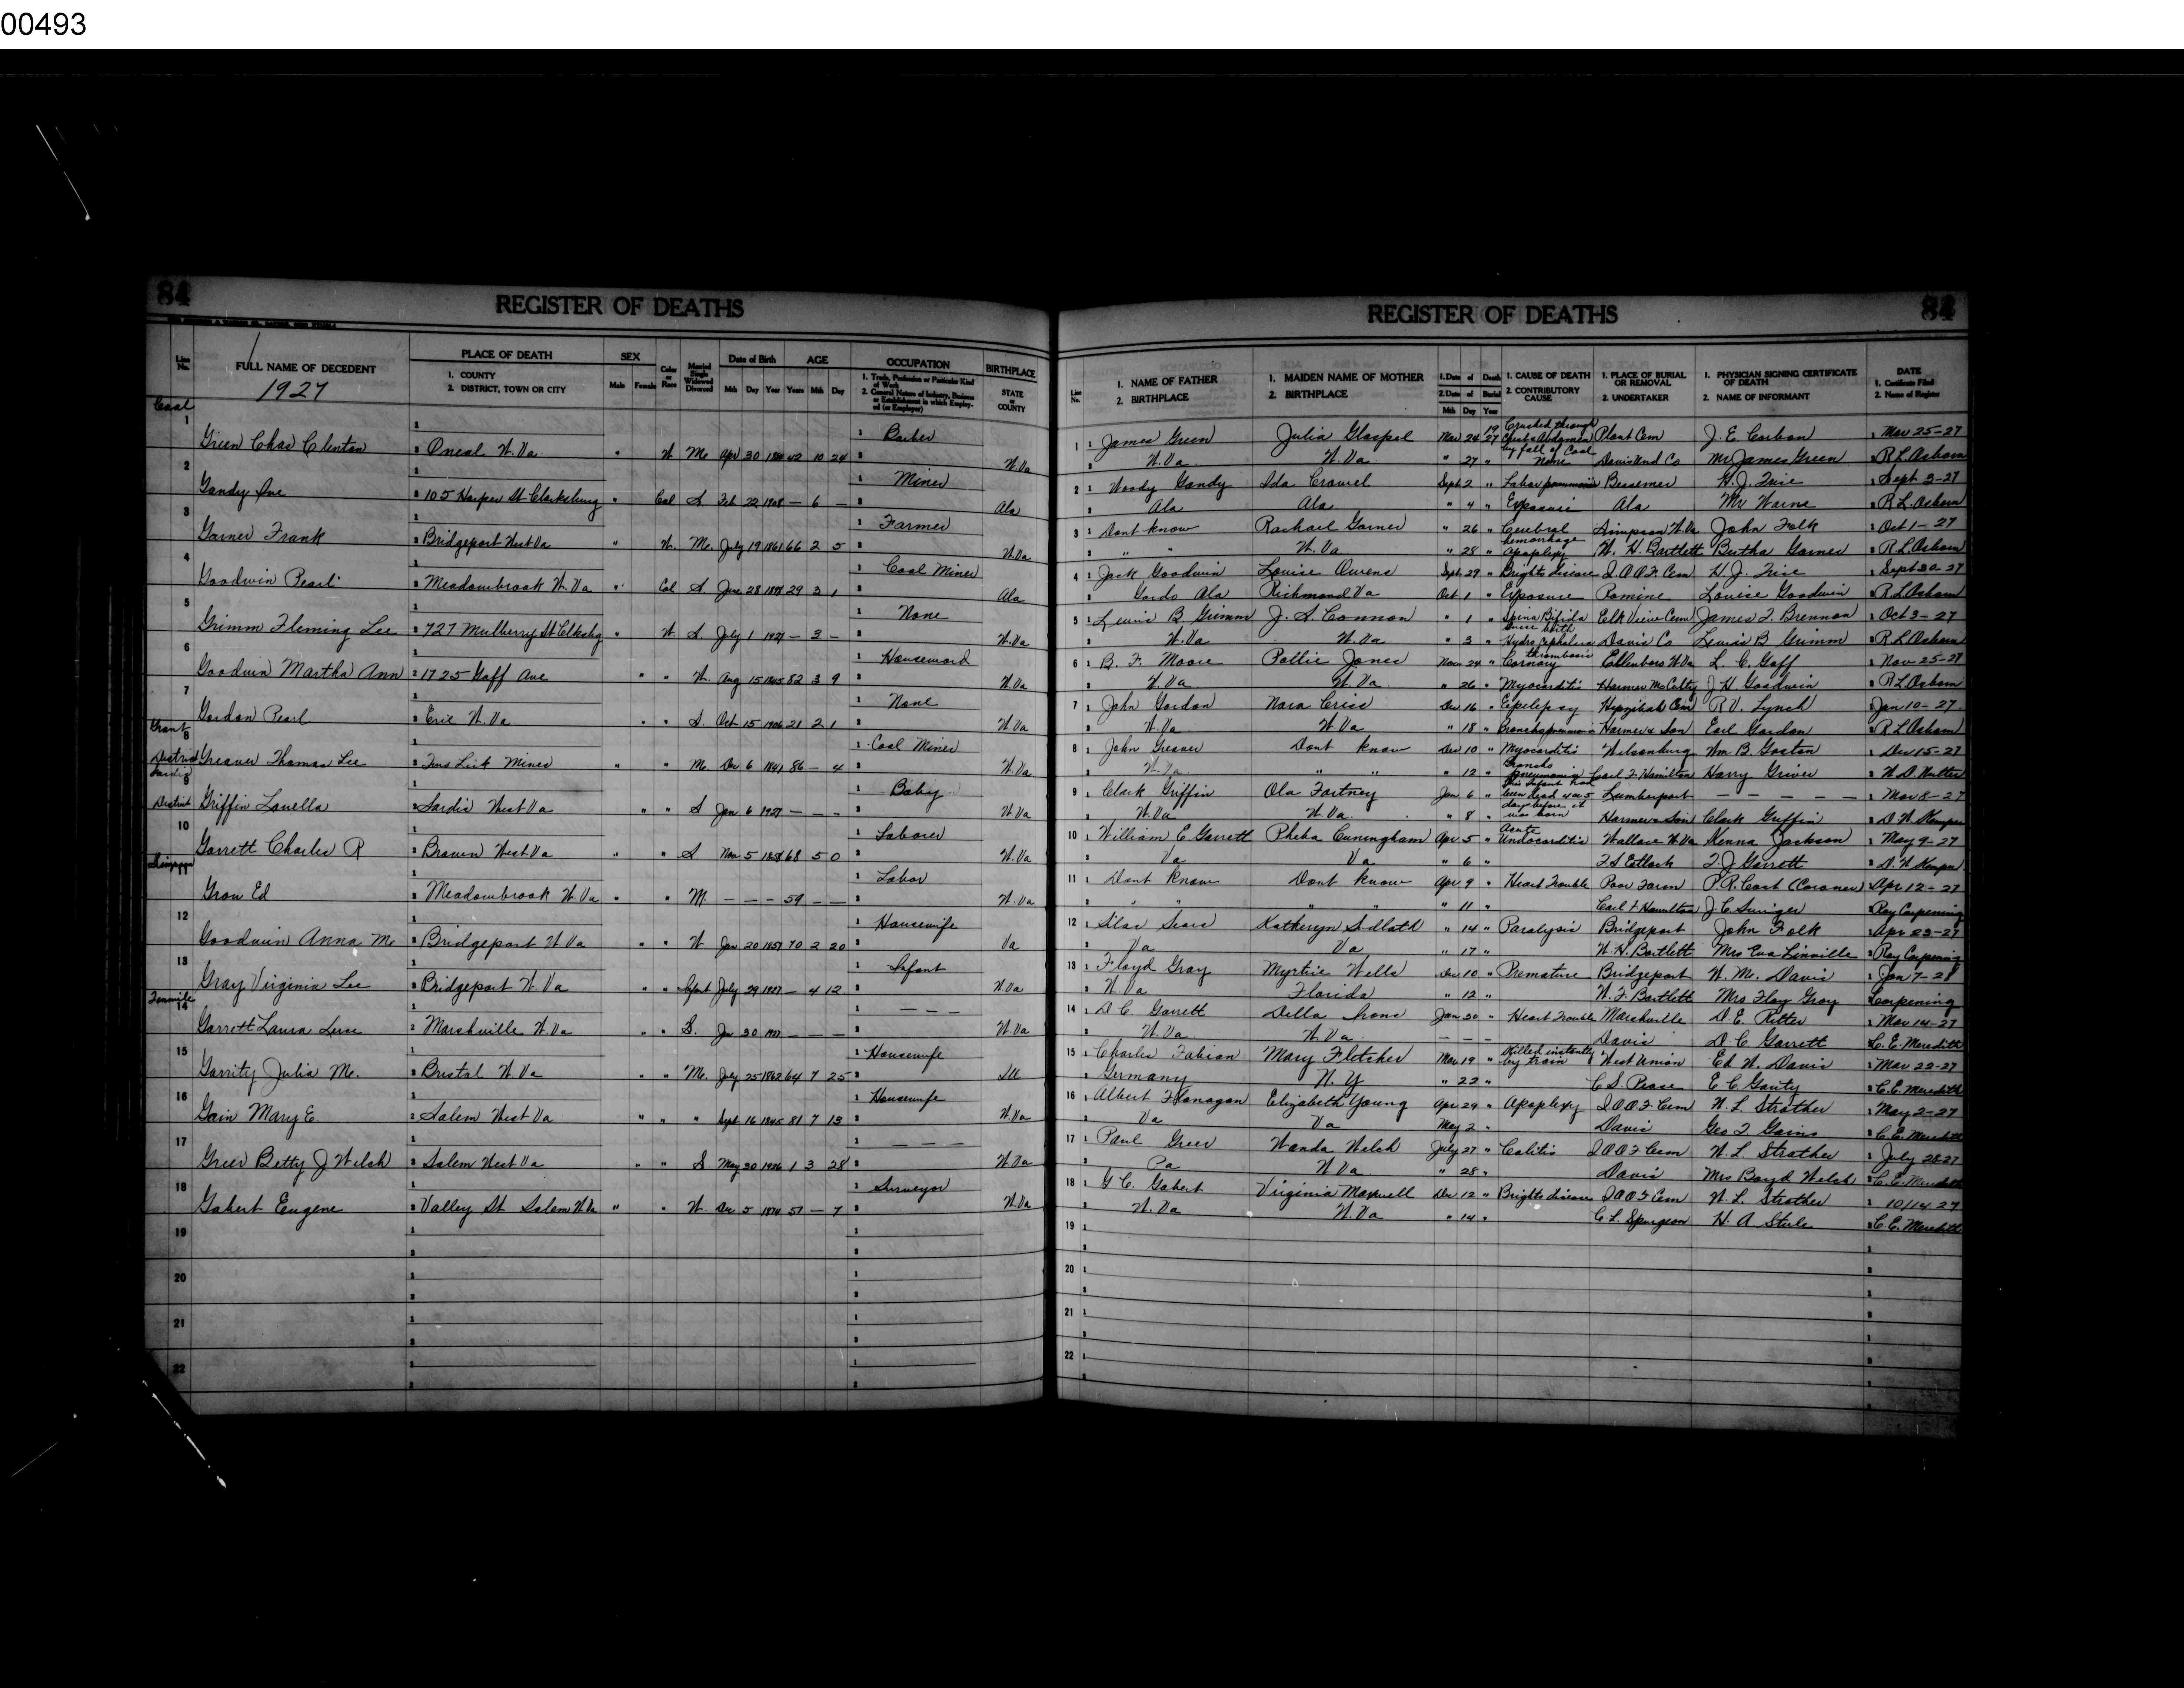 00493
84
REGISTER OF DEATHS
Line No.
FULL NAME OF DECEDENT
1927
PLACE OF DEATH
1. COUNTY
2. DISTRICT, TOWN OR CITY
SEX
Male Female
Color or Race
Married Single Widowed Divorced
Date of Birth
Mth Day Year
AGE
Years Mth Day
OCCUPATION
1. Trade, Profession or Particular Kind of Work
2. General Nature of Industry, Business or Establishment in which Employed (or Employer)
BIRTHPLACE
STATE or COUNTY
Coal
1 Barber
Green Chas Clinton 2 Oneal W.Va " W M Apr 30 42 10 24 2 W.Va
2 1 Miner
Gandy 2 105 Harper St Clarksburg " Col S Feb 22 1908 — 6 — Ala
3 1 Farmer
Garner Frank 2 Bridgeport West Va " W. M. July 19 1861 66 2 5 W.Va
4 1 Coal Miner
Goodwin Pearl 2 Meadowbrook W.Va " Col S June 28 1898 29 3 1 Ala
5 1 None
Grimm Fleming Lee 2 727 Mulberry St Clksbg " W S. July 1 1927 — 3 — W.Va
6 1 Housework
Goodwin Martha Ann 2 1725 Goff Ave " " W. Aug 15 1845 82 3 9 W.Va
7 1 None
Gordon Pearl 2 Erie W.Va " " S. Oct 15 1906 21 2 1 W.Va
Grant District
8 1 Coal Miner
Greaver Thomas Lee 2 Turs Lick Mines " " M. Dec 6 1841 86 — 4 W.Va
Sardis District
9 1 Baby
Griffin Louella 2 Sardis West Va " " S Jan 6 1927 — — — W.Va
10 1 Laborer
Garrett Charles R 2 Brown West Va " " S Nov 5 1858 68 5 0 W.Va
Simpson
11 1 Labor
Grow Ed 2 Meadowbrook W.Va " " M. — — — 59 — — W.Va
12 1 Housewife
Goodwin Anna M. 2 Bridgeport W.Va " " W Jan 20 1857 70 2 20 Va
13 1 Infant
Gray Virginia Lee 2 Bridgeport W.Va " " Infant July 29 1927 — 4 12 W.Va
Tenmile
14 1 — — —
Garrett Laura 2 Marshville W.Va " " S. Jan 30 1927 — — — W.Va
15 1 Housewife
Garrity Julia M. 2 Bristol W.Va " " M. July 25 1862 64 7 25 Ill
16 1 Housewife
Gain Mary E 2 Salem West Va " " " Sept 16 1845 81 7 13 W.Va
17 1 — — —
Greer Betty J Welch 2 Salem West Va " " S May 30 1926 1 3 28 W.Va
18 1 Surveyor
Gabert Eugene 2 Valley St Salem W.Va " " W. Dec 5 1874 — 7 W.Va
19
20
21
22
84
REGISTER OF DEATHS
Line No.
1. NAME OF FATHER
2. BIRTHPLACE
1. MAIDEN NAME OF MOTHER
2. BIRTHPLACE
1. Date of Death
2. Date of Burial
Mth Day Year
1. CAUSE OF DEATH
2. CONTRIBUTORY CAUSE
1. PLACE OF BURIAL OR REMOVAL
2. UNDERTAKER
1. PHYSICIAN SIGNING CERTIFICATE OF DEATH
2. NAME OF INFORMANT
DATE
1. Certificate Filed
2. Name of Register
1 James Green Julia Glaspel Mar 24 1927 Crushed through Chest & Abdomen by fall of Coal Plant Cem J. E. Corbon Mar 25-27
W.Va W.Va " 27 " None Davis Und Co Mr James Green R L Osborn
2 Woody Gandy Ida Crowel Sept 2 " Lobar pneumonia Bessemer H.J. Trice Sept 3-27
Ala Ala " 4 " Exposure Ala Mr Warne R L. Osborn
3 Dont know Rachael Garner " 26 " Cerebral hemorrhage Simpson W.Va John Folk Oct 1-27
" " W.Va " 28 " apoplexy W. H. Bartlett Bertha Garner R. L. Osborn
4 Jack Goodwin Louise Owens Sept. 29 " Brights disease I.O.O.F. Cem H J. Trice Sept 30-27
Gordo Ala Richmond Va Oct 1 " Exposure Romine Louise Goodwin R. L. Osborn
5 Lewis B. Grimm J. S. Connon " 1 " Spina Bifida Since birth Elk View Cem James T. Brennon Oct 3-27
W.Va W.Va " 3 " Hydrocephalus Davis Co Lewis B. Grimm R L Osborn
6 B. F. Moore Pollie Jones Nov 24 " Cornary thrombosis Ellenboro W.Va L. C. Goff Nov 25-27
W.Va W.Va " 26 " Myocarditis Harmer McCulty J H. Goodwin R L Osborn
7 John Gordon Nora Criss Dec 16 " Epilepsy Hepzibah Cem R V. Lynch Jan 10-27
W.Va W.Va " 18 " Bronchopneumonia Harmer & Son Earl Gordon R L Osborn
8 John Greaver Dont know Dec 10 " Myocarditis Wilsonburg Wm B. Gaston Dec 15-27
W.Va " " " 12 " Broncho pneumonia Carl F. Hamilton Harry Griver W D Nutter
9 Clark Griffin Ola Fortney Jan 6 " This Infant had been dead 4 or 5 days before it was born Lumberport — — — — — Mar 8-27
W.Va W.Va " 8 " Harmer & Son Clark Griffin D. W. Kemper
10 William E Garrett Pheba Cuningham Apr 5 " Acute Endocarditis Wallace W.Va Kenna Jackson May 9-27
Va Va " 6 " T. J Garrett D. W Kemper
11 Dont know Dont know Apr 9 " Heart Trouble Poor Farm P.R. Cost (Coroner) Apr 12-27
" " " " " 11 " Carl F. Hamilton J C. Ray Corpening
12 Silas Sears Katheryn Sidlath " 14 " Paralysis Bridgeport John Folk Apr 23-27
Va Va " 17 " W. H. Bartlett Mrs Eva Linville Ray Corpening
13 Floyd Gray Myrtie Wells Dec 10 " Premature Bridgeport W. M. Davis Jan 7-28
W.Va Florida " 12 " W. F. Bartlett Mrs Floy Gray Corpening
14 D. C. Garrett Della Irons Jan 30 " Heart Trouble Marshville D. E. Ritter Mar 14-27
W.Va W.Va — — — Davis D. C Garrett C. E. Meredith
15 Charles Fabian Mary Fletcher Mar 19 " Killed instantly by train West Union Ed W. Davis Mar 22-27
Germany N. Y " 22 " C S. Pease E C. Garity C. E. Meredith
16 Albert Flanagan Elizabeth Young Apr 29 " Apoplexy I.O.O.F. Cem W. L. Strother May 2-27
Va Va May 2 " Davis Geo T Gains C. E. Meredith
17 Paul Greer Wanda Welch July 27 " Colitis I.O.O.F Cem W. L. Strother July 28-27
Pa W.Va " 28 " Davis Mrs Boyd Welch C. E. Meredith
18 G C. Gabert Virginia Maxwell Dec 12 " Brights disease I.O.O.F Cem W. L. Strother 10/14 27
W.Va W.Va " 14 " C. L. Spurgeon H. A Steele C E. Meredith
19
20
21
22